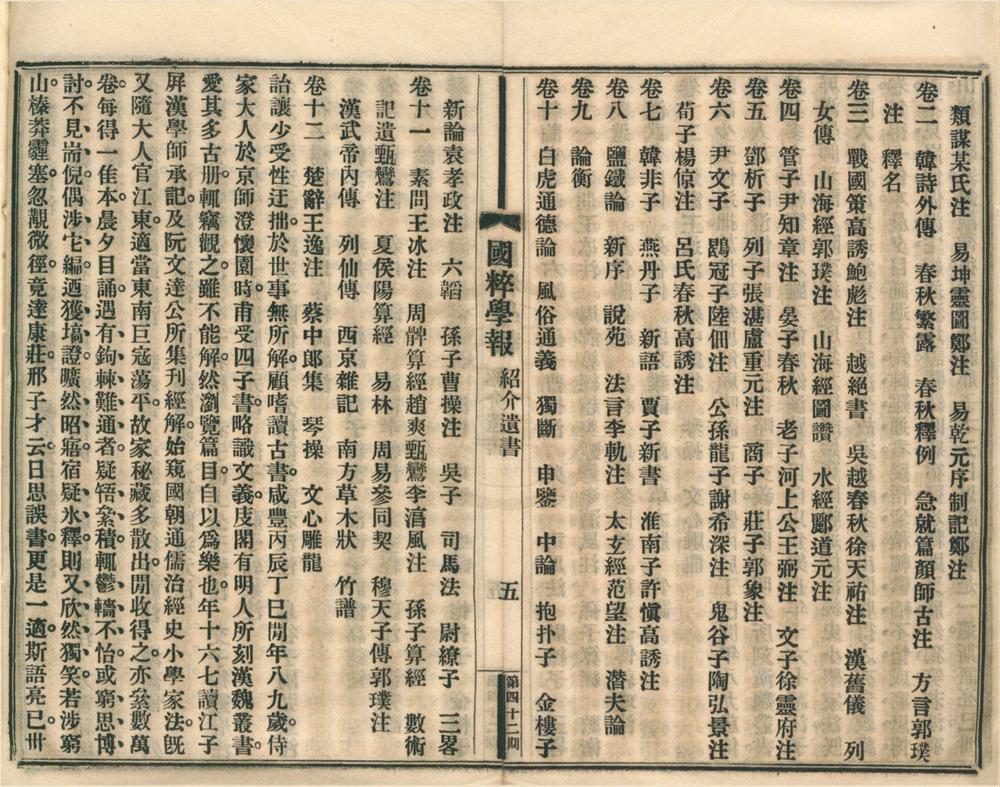 類謀某氏注　易坤靈圖鄭注　易乾元序制記鄭注
卷二　韓詩外傳　春秋繁露　春秋釋例　急就篇顏師古注　方言郭璞
注　釋名
卷三　戰國策高誘鮑彪注　越絕書　吳越春秋徐天祐注　漢舊儀　列
女傳　山海經郭璞注　山海經圖讚　水經酈道元注
卷四　管子尹知章注　晏子春秋　老子河上公王弼注　文子徐靈府注
卷五　鄧析子　列子張湛盧重元注　商子　莊子郭象注
卷六　尹文子　鶡冠子陸佃注　公孫龍子謝希深注　鬼谷子陶弘景注
荀子楊倞注　呂氏春秋高誘注
卷七　韓非子　燕丹子　新語　賈子新書　淮南子許愼高誘注
卷八　鹽鐵論　新序　說苑　法言李軌注　太玄經范望注　潛夫論
卷九　論衡
卷十　白虎通德論　風俗通義　獨斷　申鑒　中論　抱扑子　金樓子
國粹學報　紹介遺書　五　第四十二期
新論袁孝政注　六韜　孫子曹操注　吳子　司馬法　尉繚子　三畧
卷十一　素問王冰注　周髀算經趙爽甄鸞李淳風注　孫子算經　數術
記遺甄鸞注　夏侯陽算經　易林　周易參同契　穆天子傳郭璞注
漢武帝內傳　列仙傳　西京雜記　南方草木狀　竹譜
卷十二　楚辭王逸注　蔡中郎集　琴操　文心雕龍
詒讓少受性迂拙。於世事無所解。顧嗜讀古書。咸豐丙辰丁巳閒年八九歲。侍
家大人於京師澄懷園。時甫受四子書。略識文義。庋閣有明人所刻漢魏叢書。
愛其多古册。輒竊觀之。雖不能解。然瀏覽篇目。自以爲樂也。年十六七讀江子
屏漢學師承記。及阮文達公所集刊經解。始窺國朝通儒治經史小學家法。旣
又隨大人官江東。適當東南巨寇蕩平。故家秘藏多散出。閒收得之。亦絫數萬
卷。每得一隹本。晨夕目誦。遇有鉤棘難通者。疑啎絫積。輒鬱轖不怡。或窮思博
討。不見耑倪。偶涉它編。迺獲塙證。曠然昭寤。宿疑氷釋。則又欣然獨笑。若涉窮
山榛莽霾塞。忽覯微徑。竟達康莊。邢子才云。日思誤書。更是一適。斯語亮已。卅